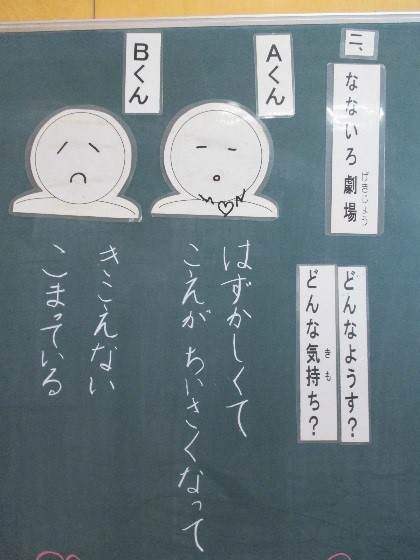 二、
なないろ劇場
げきじょう
どんなようす?
どんな気持ち?
きも
Aくん
はずかしくて
こえがちいさくなって
Bくん
きこえない
こまっている